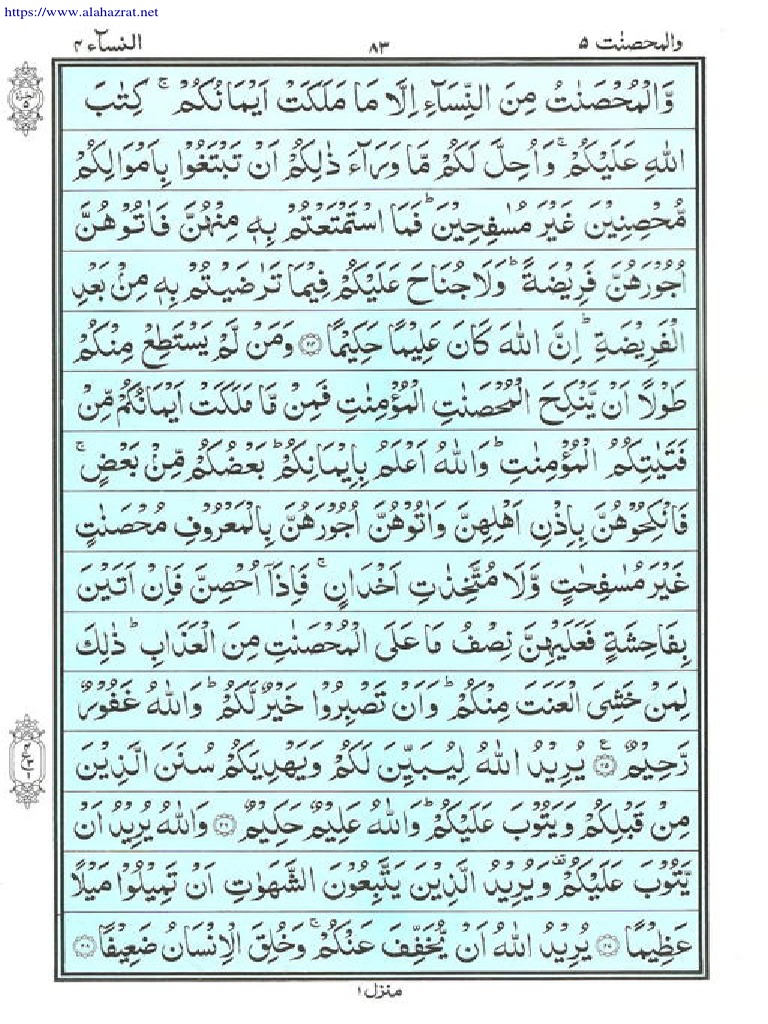 https://www.alahazrat.net
والمحصنٰت ۵ ۸۳ النسآء ۴
وَّالْمُحْصَنٰتُ مِنَ النِّسَآءِ اِلَّا مَا مَلَكَتْ اَيْمَانُكُمْ ۚ كِتٰبَ
اللهِ عَلَيْكُمْ ۚ وَاُحِلَّ لَكُمْ مَّا وَرَآءَ ذٰلِكُمْ اَنْ تَبْتَغُوْا بِاَمْوَالِكُمْ
مُّحْصِنِيْنَ غَيْرَ مُسٰفِحِيْنَ ؕ فَمَا اسْتَمْتَعْتُمْ بِهٖ مِنْهُنَّ فَاٰتُوْهُنَّ
اُجُوْرَهُنَّ فَرِيْضَةً ؕ وَلَا جُنَاحَ عَلَيْكُمْ فِيْمَا تَرٰضَيْتُمْ بِهٖ مِنْۢ بَعْدِ
الْفَرِيْضَةِ ؕ اِنَّ اللهَ كَانَ عَلِيْمًا حَكِيْمًا ﴿۲۴﴾ وَمَنْ لَّمْ يَسْتَطِعْ مِنْكُمْ
طَوْلًا اَنْ يَّنْكِحَ الْمُحْصَنٰتِ الْمُؤْمِنٰتِ فَمِنْ مَّا مَلَكَتْ اَيْمَانُكُمْ مِّنْ
فَتَيٰتِكُمُ الْمُؤْمِنٰتِ ؕ وَاللهُ اَعْلَمُ بِاِيْمَانِكُمْ ؕ بَعْضُكُمْ مِّنْۢ بَعْضٍ ۚ
فَانْكِحُوْهُنَّ بِاِذْنِ اَهْلِهِنَّ وَاٰتُوْهُنَّ اُجُوْرَهُنَّ بِالْمَعْرُوْفِ مُحْصَنٰتٍ
غَيْرَ مُسٰفِحٰتٍ وَّلَا مُتَّخِذٰتِ اَخْدَانٍ ۚ فَاِذَاۤ اُحْصِنَّ فَاِنْ اَتَيْنَ
بِفَاحِشَةٍ فَعَلَيْهِنَّ نِصْفُ مَا عَلَى الْمُحْصَنٰتِ مِنَ الْعَذَابِ ؕ ذٰلِكَ
لِمَنْ خَشِيَ الْعَنَتَ مِنْكُمْ ؕ وَاَنْ تَصْبِرُوْا خَيْرٌ لَّكُمْ ؕ وَاللهُ غَفُوْرٌ
رَّحِيْمٌ ﴿۲۵﴾ يُرِيْدُ اللهُ لِيُبَيِّنَ لَكُمْ وَيَهْدِيَكُمْ سُنَنَ الَّذِيْنَ
مِنْ قَبْلِكُمْ وَيَتُوْبَ عَلَيْكُمْ ؕ وَاللهُ عَلِيْمٌ حَكِيْمٌ ﴿۲۶﴾ وَاللهُ يُرِيْدُ اَنْ
يَّتُوْبَ عَلَيْكُمْ وَيُرِيْدُ الَّذِيْنَ يَتَّبِعُوْنَ الشَّهَوٰتِ اَنْ تَمِيْلُوْا مَيْلًا
عَظِيْمًا ﴿۲۷﴾ يُرِيْدُ اللهُ اَنْ يُّخَفِّفَ عَنْكُمْ ۚ وَخُلِقَ الْاِنْسَانُ ضَعِيْفًا ﴿۲۸﴾
منزل ۱